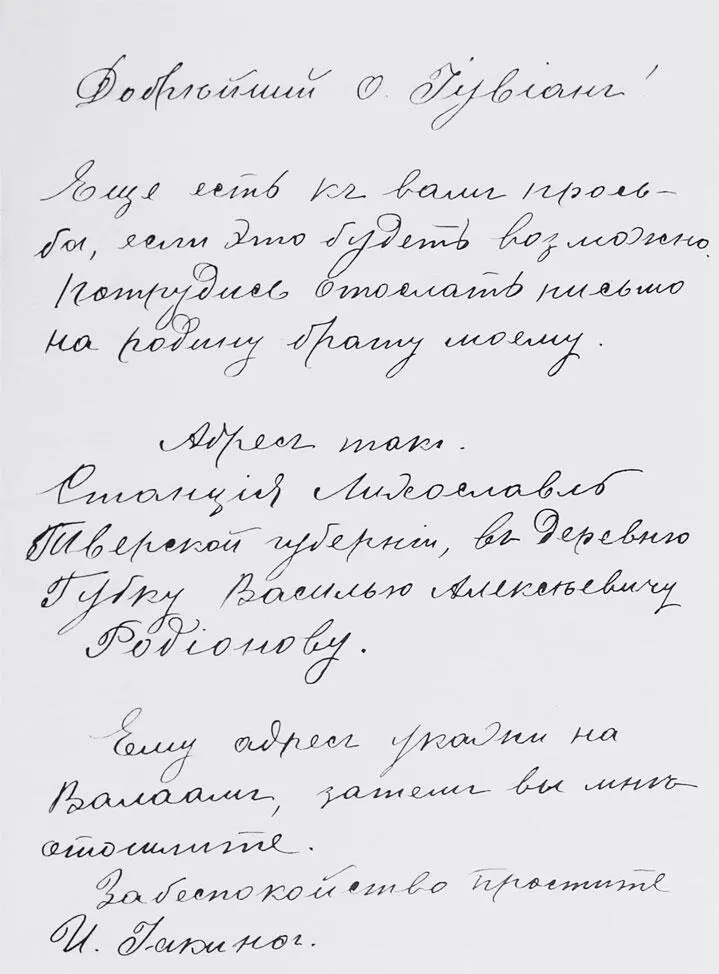 Добрѣйшій о. Іувіанъ!
Еще есть къ вамъ прось-
ба, если это будетъ возможно.
Потрудись отослать письмо
на родину брату моему.
Адресъ такъ.
Станція Лихославль
Тверской губерніи, въ деревню
Губку Василью Алексѣевичу
Родіонову.
Ему адресъ укажи на
Валаамъ, затемъ вы мнѣ
отошлите.
За беспокойство простите
И. Іакинѳ.